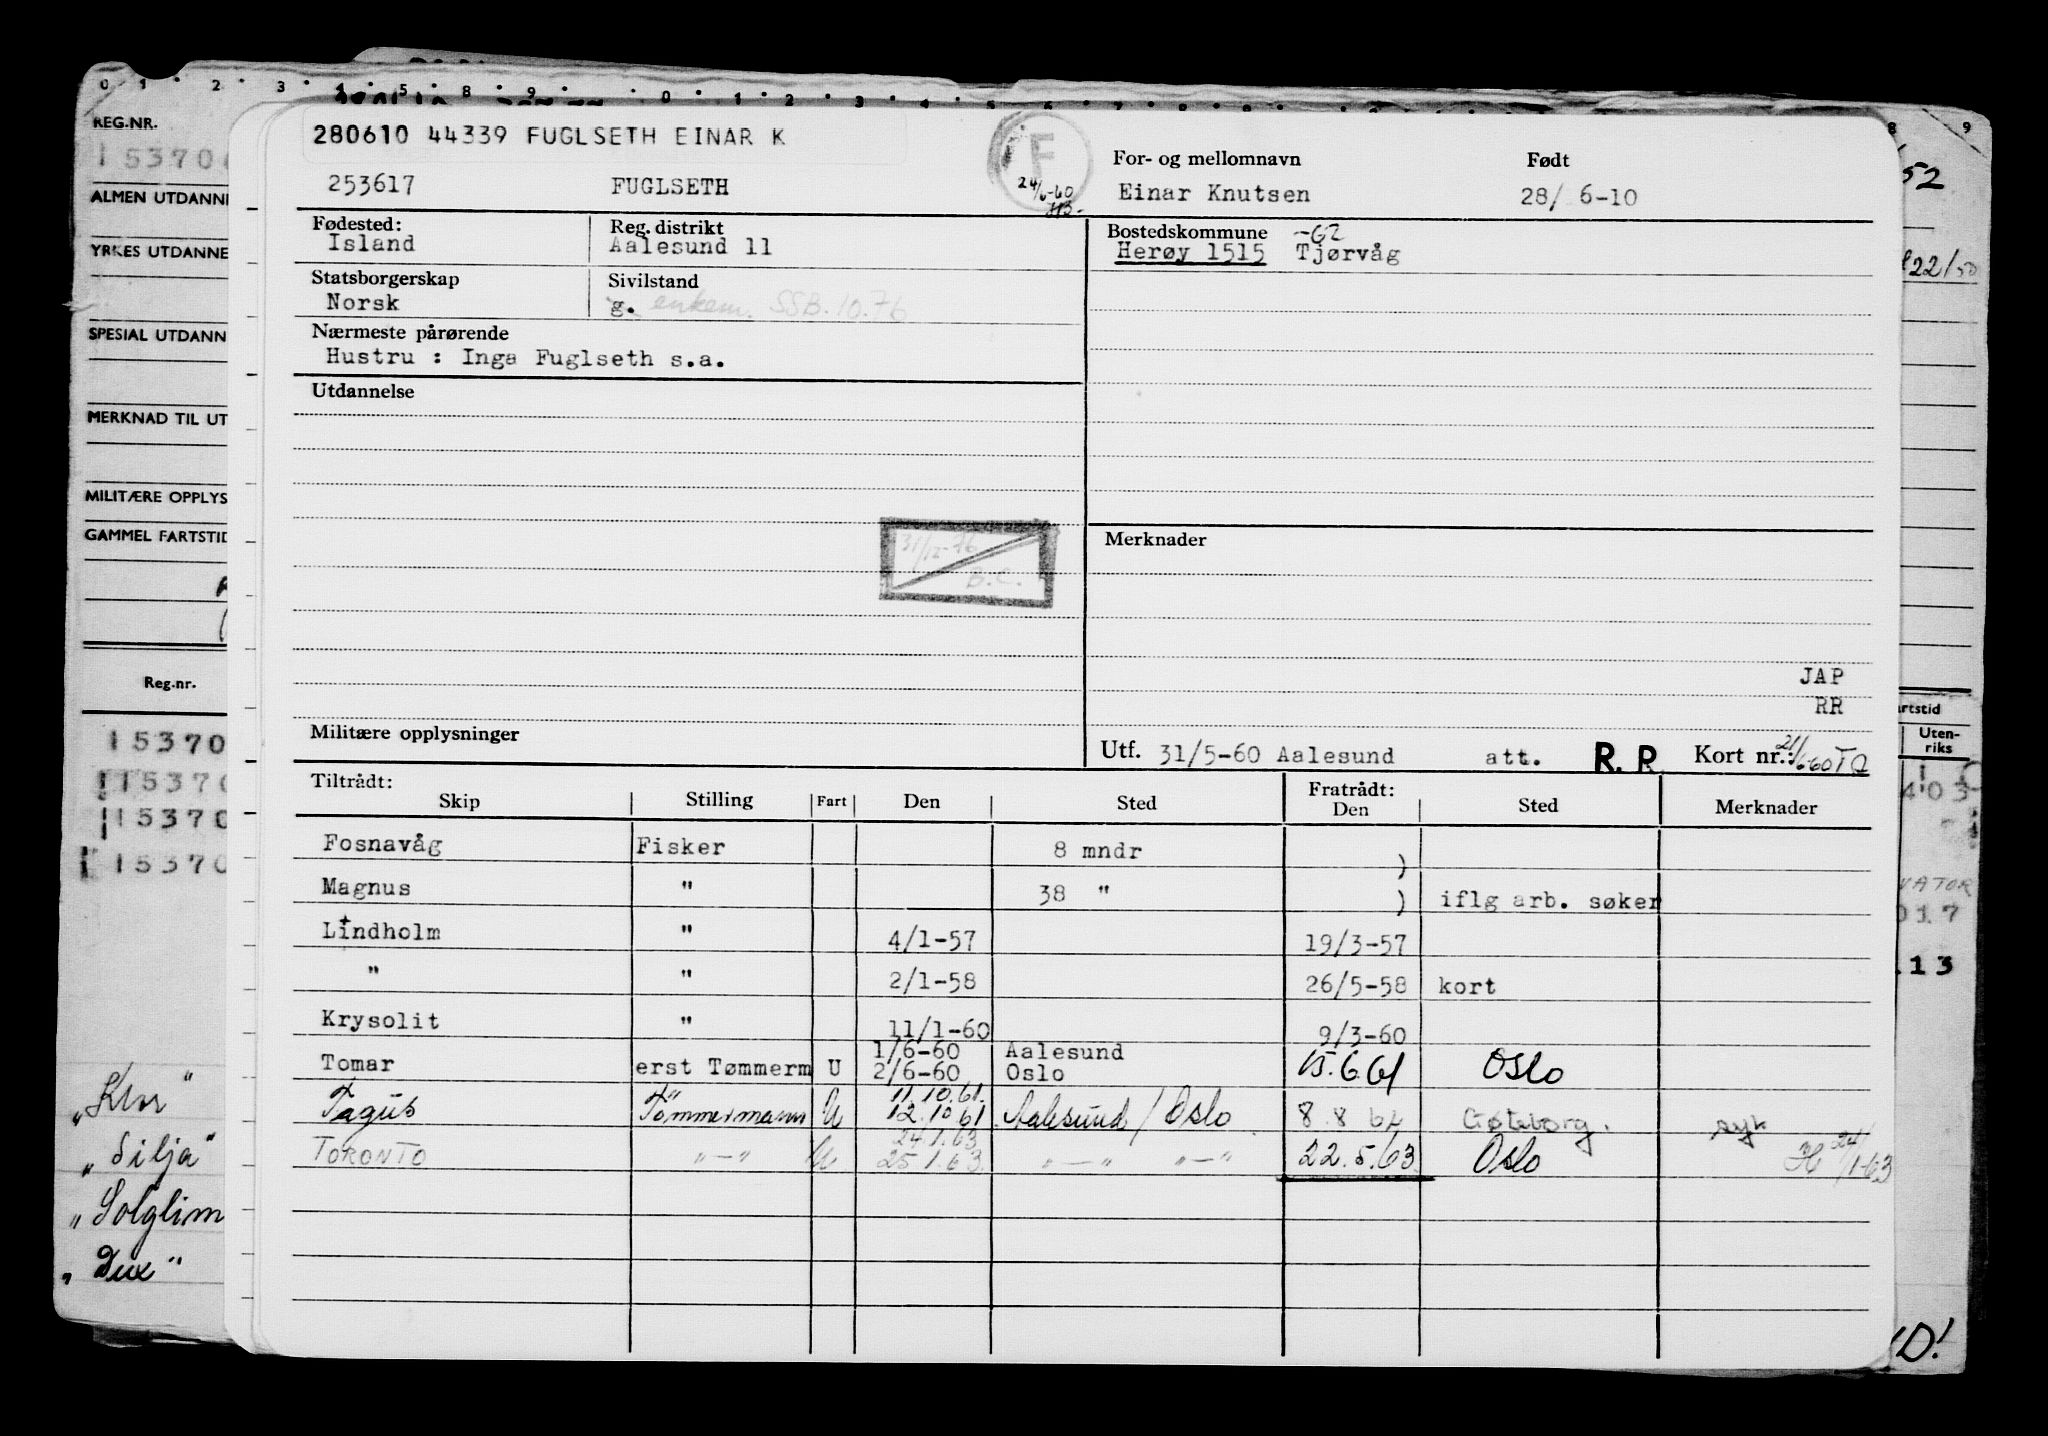 0 1 2 3 4 5 8 9 0 1 2 3 4 5 6 7 8 9
REG.NR.
15370
ALMEN UTDANNE
YRKES UTDANNE
SPESIAL UTDANN
MERKNAD TIL UT
MILITÆRE OPPLYS
GAMMEL FARTSTID
Reg.nr.
15370
15370
15370
15370
„Klør"
„Silja"
„Solglimt
„Dux"
280610 44339 FUGLSETH EINAR K
F
24/6-60
HB.
253617 FUGLSETH
For- og mellomnavn Født
Einar Knutsen 28/ 6-10
Fødested: Reg. distrikt
Island Aalesund 11
Bostedskommune -62
Herøy 1515 Tjørvåg
Statsborgerskap Sivilstand
Norsk g. enkem. SSB.10.76
Nærmeste pårørende
Hustru : Inga Fuglseth s.a.
Utdannelse
31/12-76
B.C.
Merknader
JAP
RR
Militære opplysninger
Utf. 31/5-60 Aalesund att. R.R. Kort nr.: 21/6-60
Tiltrådt: Fratrådt:
Skip Stilling Fart Den Sted Den Sted Merknader
Fosnavåg Fisker 8 mndr )
Magnus " 38 " ) iflg arb. søker
Lindholm " 4/1-57 19/3-57
" " 2/1-58 26/5-58 kort
Krysolit " 11/1-60 9/3-60
1/6-60 Aalesund
Tomar erst Tømmerm U 2/6-60 Oslo 15.6.61 Oslo
" 11.10.61.
Tagus Tømmermann U 12.10.61 Aalesund / Oslo 8.8 62 Gøteborg. syk
24.1.63
TORONTO "—" U 25.1.63. "—" "—" 22.5.63 Oslo H 24/1-63
8 9
52
22/50
artstid
Uten-
riks
403
VATOR
017
113
D!